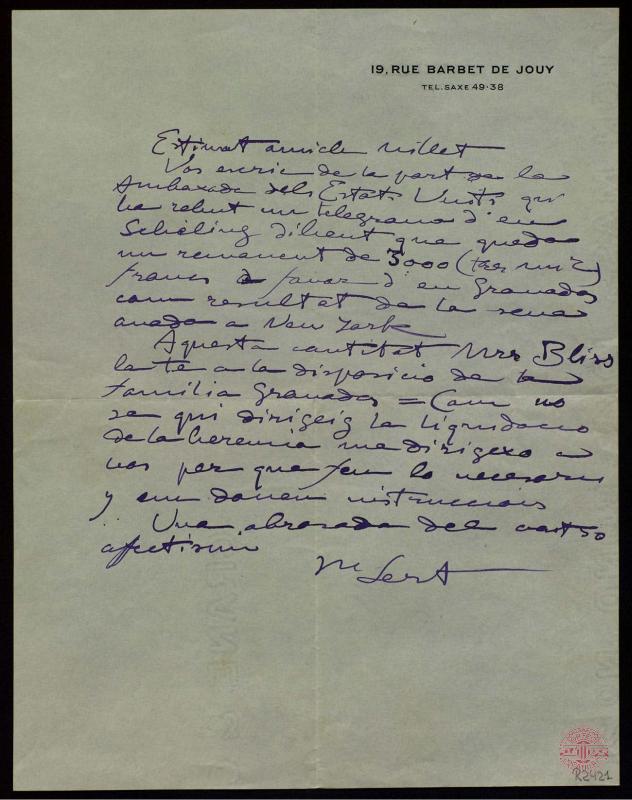 19, RUE BARBET DE JOUY
TEL. SAXE 49·38
Estimat amich Millet
Vos escric de la part de la
Ambaxada dels Estats Units qui
ha rebut un telegrama d'en
Scheling dihent que queda
un romanent de 3000 (tres mil)
francs a favor d'en Granados
com resultat de la seva
anada a New York
Aquesta cantitat Mrs Bliss
la te a la disposicio de la
familia Granados = Com no
se qui dirigeig la liquidacio
de la herencia me dirigexo a
vos per que feu lo necesari
y em doneu instruccions
Una abrasada del vostro
afectisim
M Sert
R2421